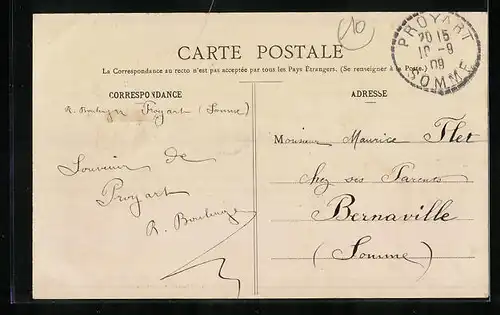 10
PROYART
20 15
10 -9
09
SOMME
CARTE POSTALE
La Correspondance au recto n'est pas acceptée par tous les Pays Etrangers. (Se renseigner à la Poste.)
CORRESPONDANCE
R. Boulenger Proyart (Somme)
Souvenir de
Proyart
R. Boulenger
ADRESSE
Monsieur Maurice Flet
chez ses Parents
Bernaville
(Somme)